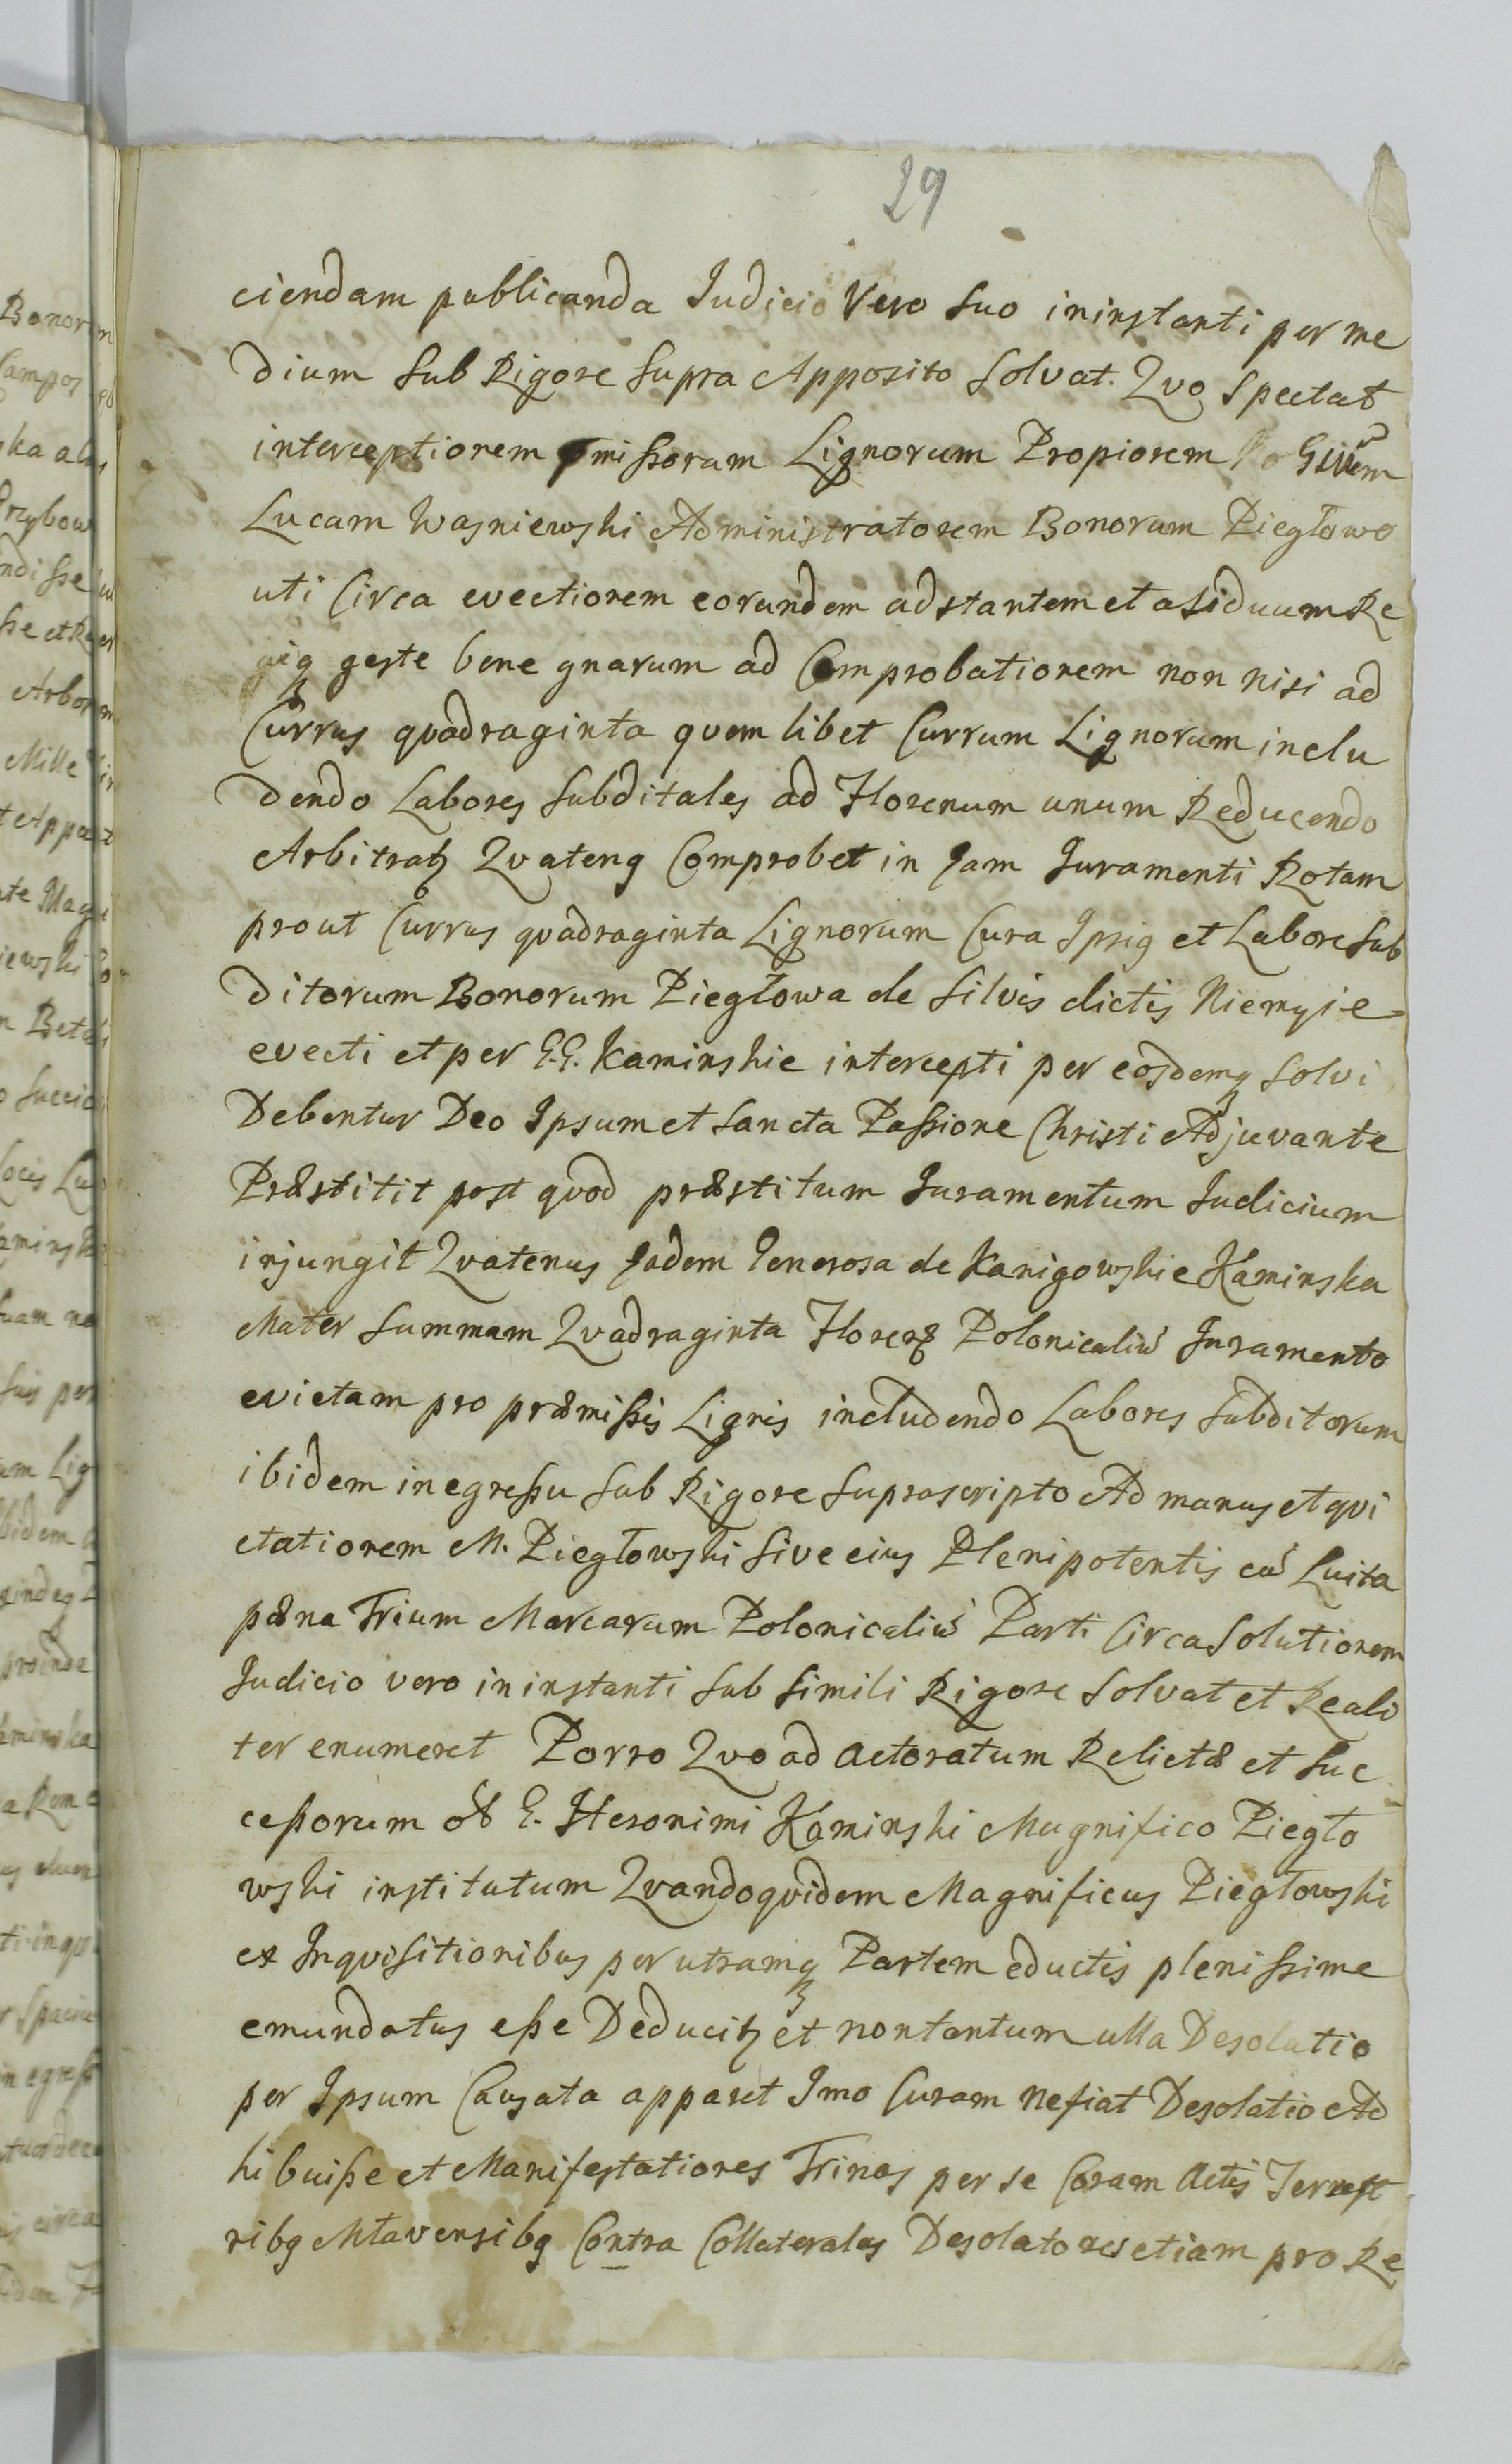 29
ciendam publicanda Judicio Vero suo ininstanti per me
dium sub Rigore supra Apposito solvat. Qvo spectat
interceptionem pmissorum Lignorum Propiorem
Lucam Wasniewski Administratorem Bonorum Piegłowo
uti Circa evectionem eorundem adstantem et assiduum Re
geste bene gnarum ad Comprobationem non nisi ad
Currus qvadraginta quem libet Currum Lignorum inclu
dendo Labores subditales ad Florenum unum Reducendo
Arbitratz Qvateng Comprobet in Jam Juramenti Rotam
prout Currus qvadraginta Lignorum Cura Ipsig et Labore sub
ditorum Bonorum Piegłowa de silvis dictis Niemyie
evecti et per G.G. Kaminskie intercepti per eosdemq solvi
Debentur Deo Ipsum et sancta Passione Christi Adjuvante
Præstitit post qvod præstitum Juramentum Judicium
injungit Qvatenus Eadem Generosa de Kanigowskie Kaminska
Mater summam Qvadraginta Florenor Polonicaliu Juramento
evictam pro præmissis Lignis includendo Labores subditorum
ibidem inegressu sub Rigore suprascripto Ad manus et qvi
etationem M. Piegłowski sive eius Plenipotentis cu Luita
pæna Trium Marcarum Polonicaliu Parti Circa solutionem
Judicio vero ininstanti sub simili Rigore solvat et Reali
ter enumeret Porro Qvo ad actoratum Relictæ et suc
cessorum ol G. Heronimi Kaminski Magnifico Piegło
wski institutum Qvandoqvidem Magnificus Piegłowski
ex Inqvisitionibus per utramq Partem eductis plenissime
emundatus esse Deducitz et nontantum ulla Desolatio
per Ipsum Causata apparet Imo Curam nefiat Desolatio Ad
hibuisse et Manifestationes Trinas per se Coram Actis Terrest
ribg Młavensibg Contra Collaterales Desolatores etiam pro Re